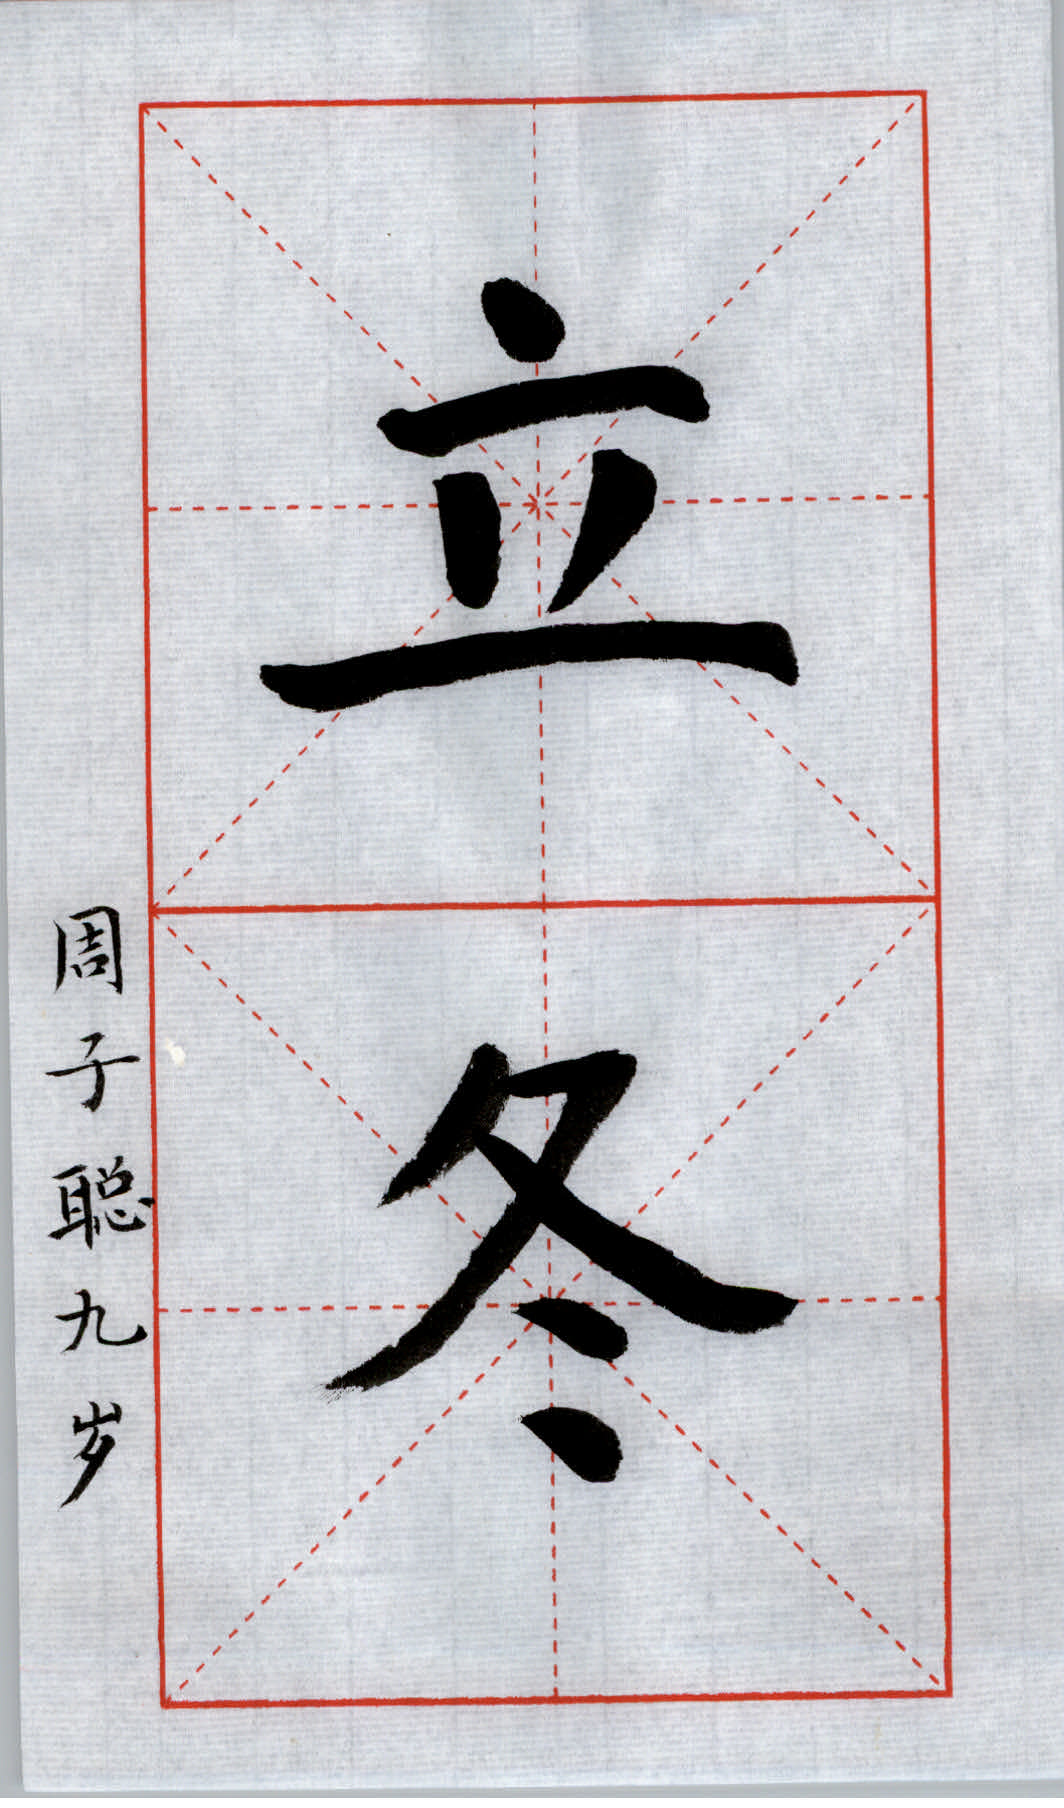 立冬
周子聪九岁